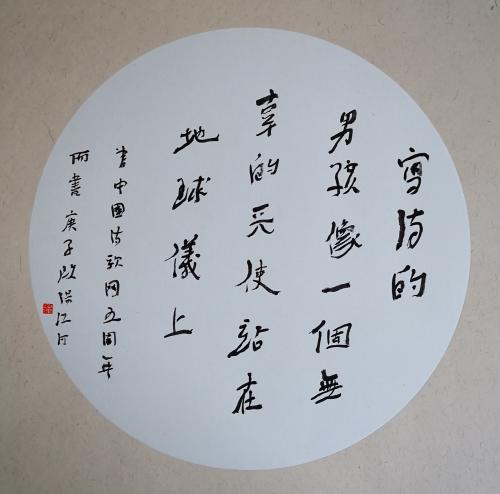 寫诗的
男孩像一個無
辜的天使站在
地球儀上
中國诗歌网五周年
而書 庚子